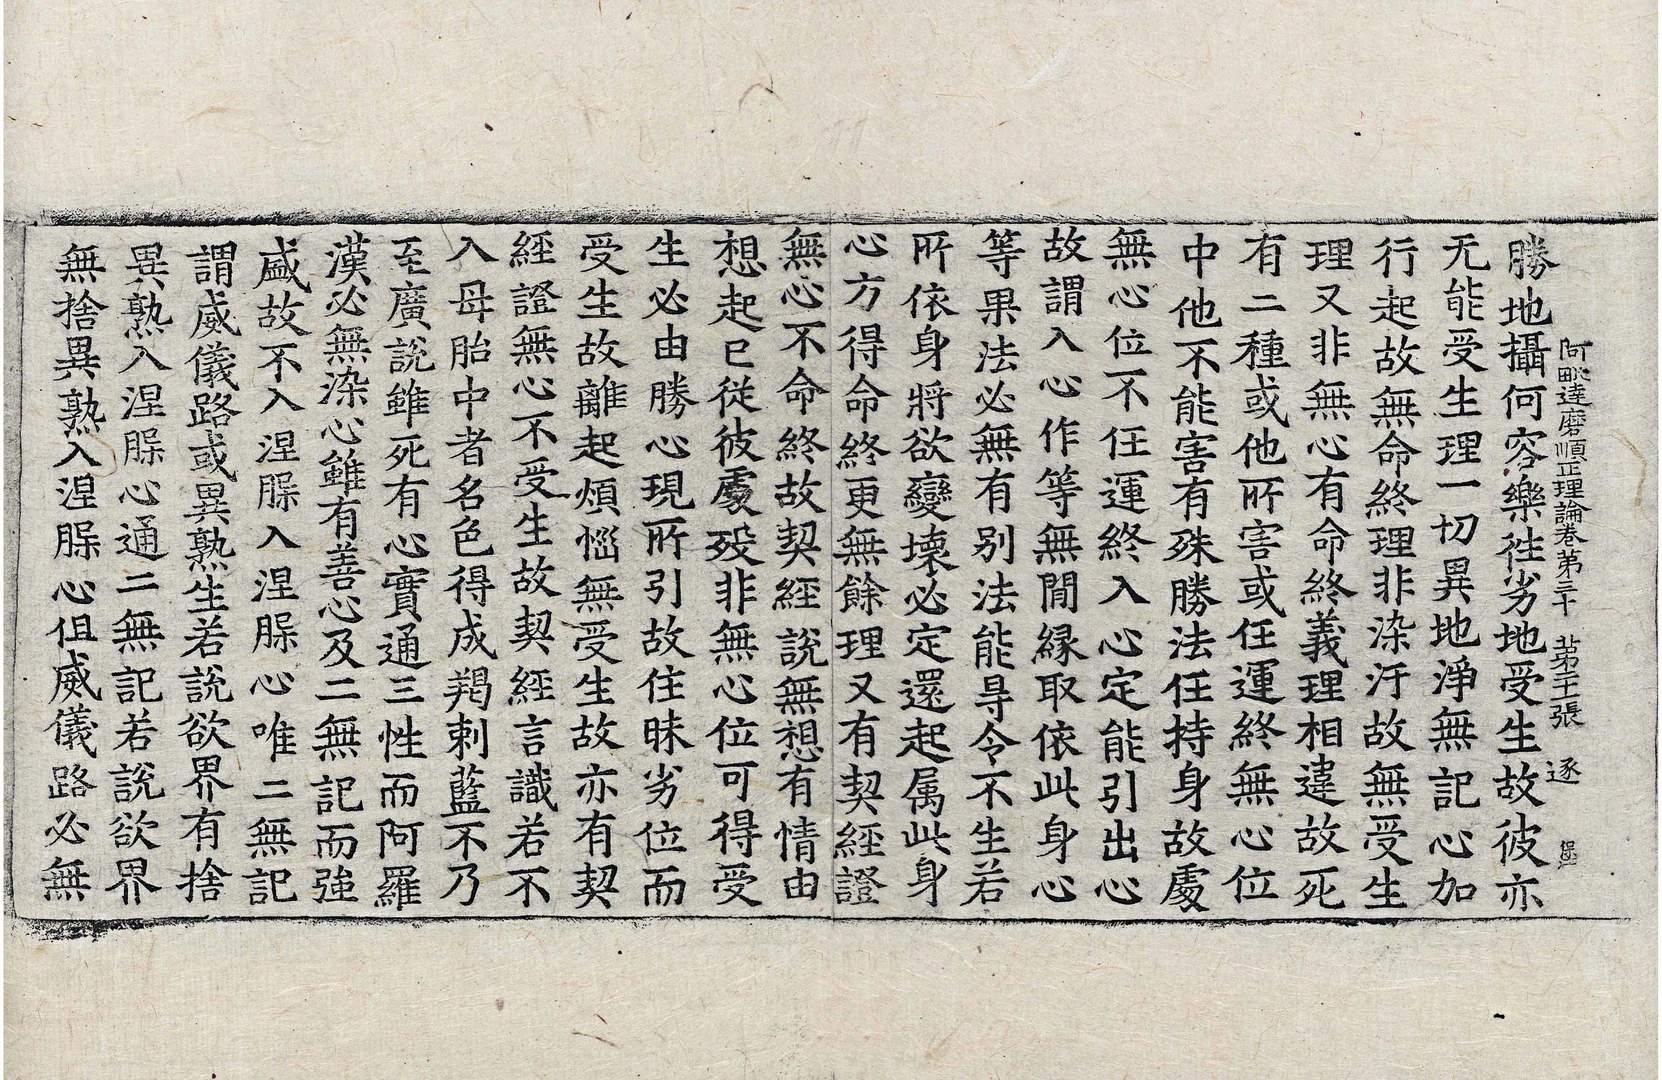 阿毗達磨順正理論卷第三十 苐十一張 逐
勝地攝何容樂徃劣地受生故彼亦
无能受生理一切異地淨無記心加
行起故無命終理非染汙故無受生
理又非無心有命終義理相違故死
有二種或他所害或任運終無心位
中他不能害有殊勝法任持身故處
無心位不任運終入心定能引出心
故謂入心作等無間縁取依此身心
等果法必無有別法能㝵令不生若
所依身將欲變壞必定還起属此身
心方得命終更無餘理又有契經證
無心不命終故契經說無想有情由
想起已從彼處歿非無心位可得受
生必由勝心現所引故住昧劣位而
受生故離起煩惱無受生故亦有契
經證無心不受生故契經言識若不
入母胎中者名色得成羯剌藍不乃
至廣說雖死有心實通三性而阿羅
漢必無染心雖有善心及二無記而強
盛故不入涅槃入涅槃心唯二無記
謂威儀路或異熟生若說欲界有捨
異熟入涅槃心通二無記若說欲界
無捨異熟入涅槃心但威儀路必無